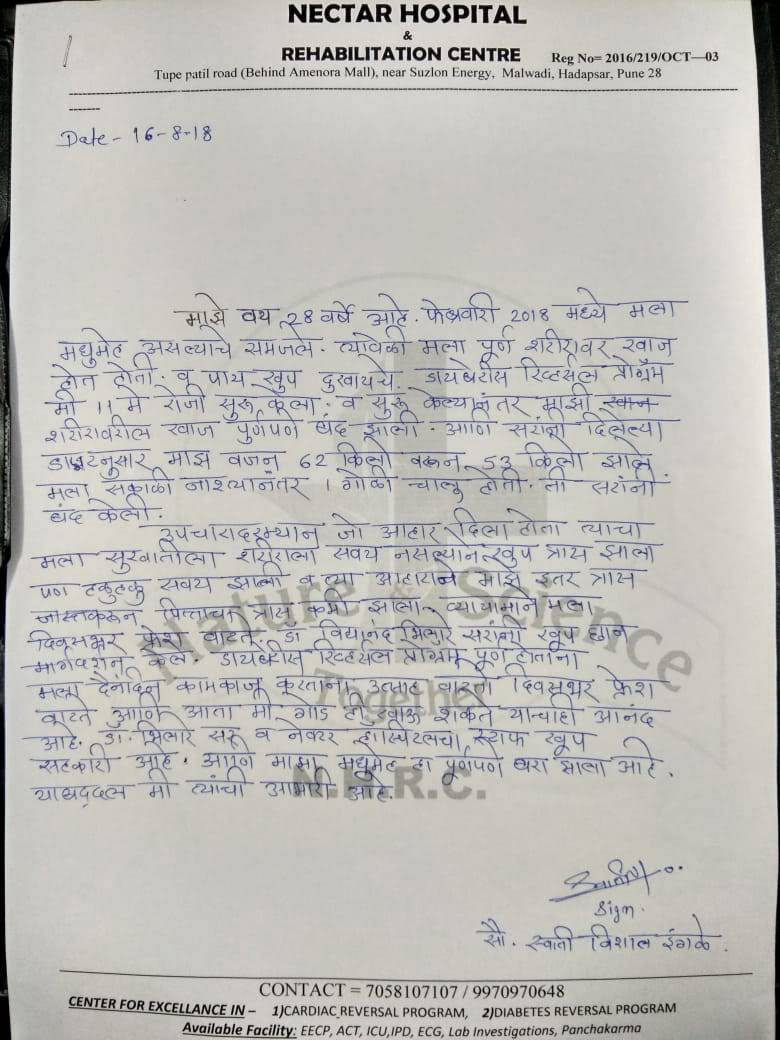 NECTAR HOSPITAL
&
REHABILITATION CENTRE Reg No= 2016/219/OCT—03
Tupe patil road (Behind Amenora Mall), near Suzlon Energy, Malwadi, Hadapsar, Pune 28
Date - 16-8-18
माझे वय 28 वर्षे आहे. फेब्रुवारी 2018 मध्ये मला
मधुमेह असल्याचे समजले. त्यावेळी मला पूर्ण शरीरावर खाज
होत होती. व पाय खुप दुखायचे. डायबेटीस रिव्हर्सल प्रोग्रॅम
मी 11 मे रोजी सुरू केला. व सुरू केल्यानंतर माझी
शरीरावरील खाज पुर्णपणे बंद झाली. आणि सरांनी दिलेल्या
डाएटनुसार माझे वजन 62 किलो वरून 53 किलो झाले.
मला सकाळी नाश्त्यानंतर 1 गोळी चालू होती. ती सरांनी
बंद केली.
उपचारादरम्यान जो आहार दिला होता त्याचा
मला सुरवातीला शरीराला सवय नसल्याने खुप त्रास झाला
पण हळुहळु सवय झाली व त्या आहाराने माझे इतर त्रास
जास्तकरून पित्ताचा त्रास कमी झाला. व्यायामाने मला
दिवसभर फ्रेश वाटते. डॉ विद्यानंद भिलारे सरांनी खूप छान
मार्गदर्शन केले. डायबेटीस रिव्हर्सल प्रोग्राम पूर्ण होताना
मला दैनंदिन कामकाज करताना उत्साह वाटतो दिवसभर फ्रेश
वाटते आणि आता मी गोड ही खाऊ शकते याचाही आनंद
आहे. डॉ. भिलारे सर व नेक्टर हॉस्पिटलचा स्टाफ खूप
सहकारी आहे. आणि माझा मधुमेह हा पूर्णपणे बरा झाला आहे.
याबद्दल मी त्यांची आभारी आहे.
Nature & Science
Together
N.H.R.C.
Sign.
सौ. स्वाती विशाल इंगळे.
CONTACT = 7058107107 / 9970970648
CENTER FOR EXCELLANCE IN – 1)CARDIAC REVERSAL PROGRAM, 2)DIABETES REVERSAL PROGRAM
Available Facility: EECP, ACT, ICU,IPD, ECG, Lab Investigations, Panchakarma